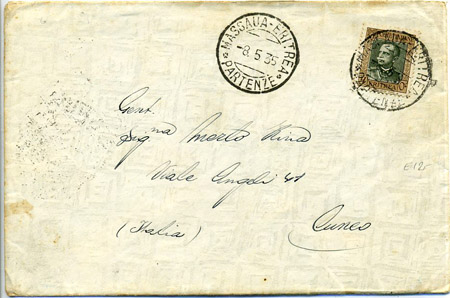 MASSAUA-ERITREA
-8.5.35
PARTENZE
ERITREA
Gent.
Sig.na Merlo Rina
Viale Angeli 41
(Italia) Cuneo